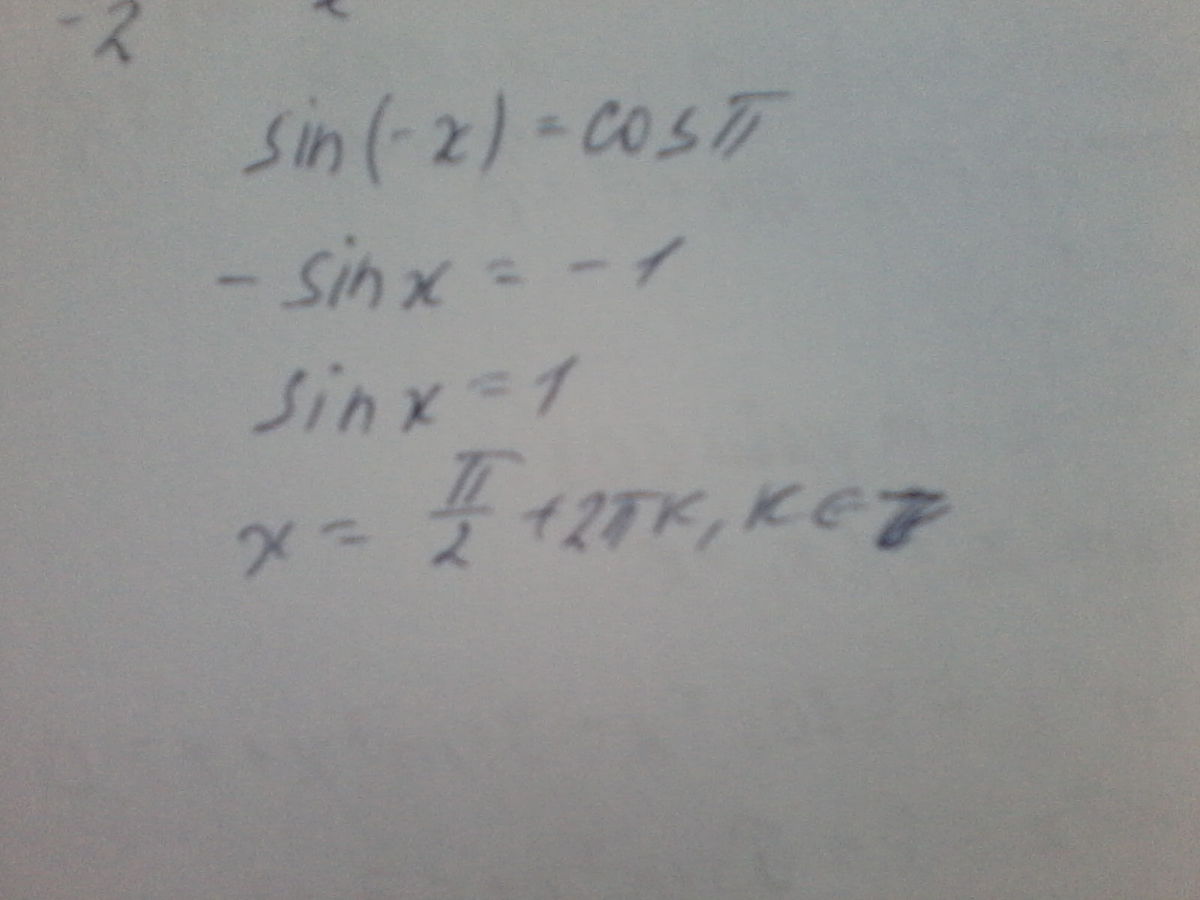 -2
sin(-x)=cosπ
- sinx = -1
sinx =1
x = π/2 +2πk, k∈Z